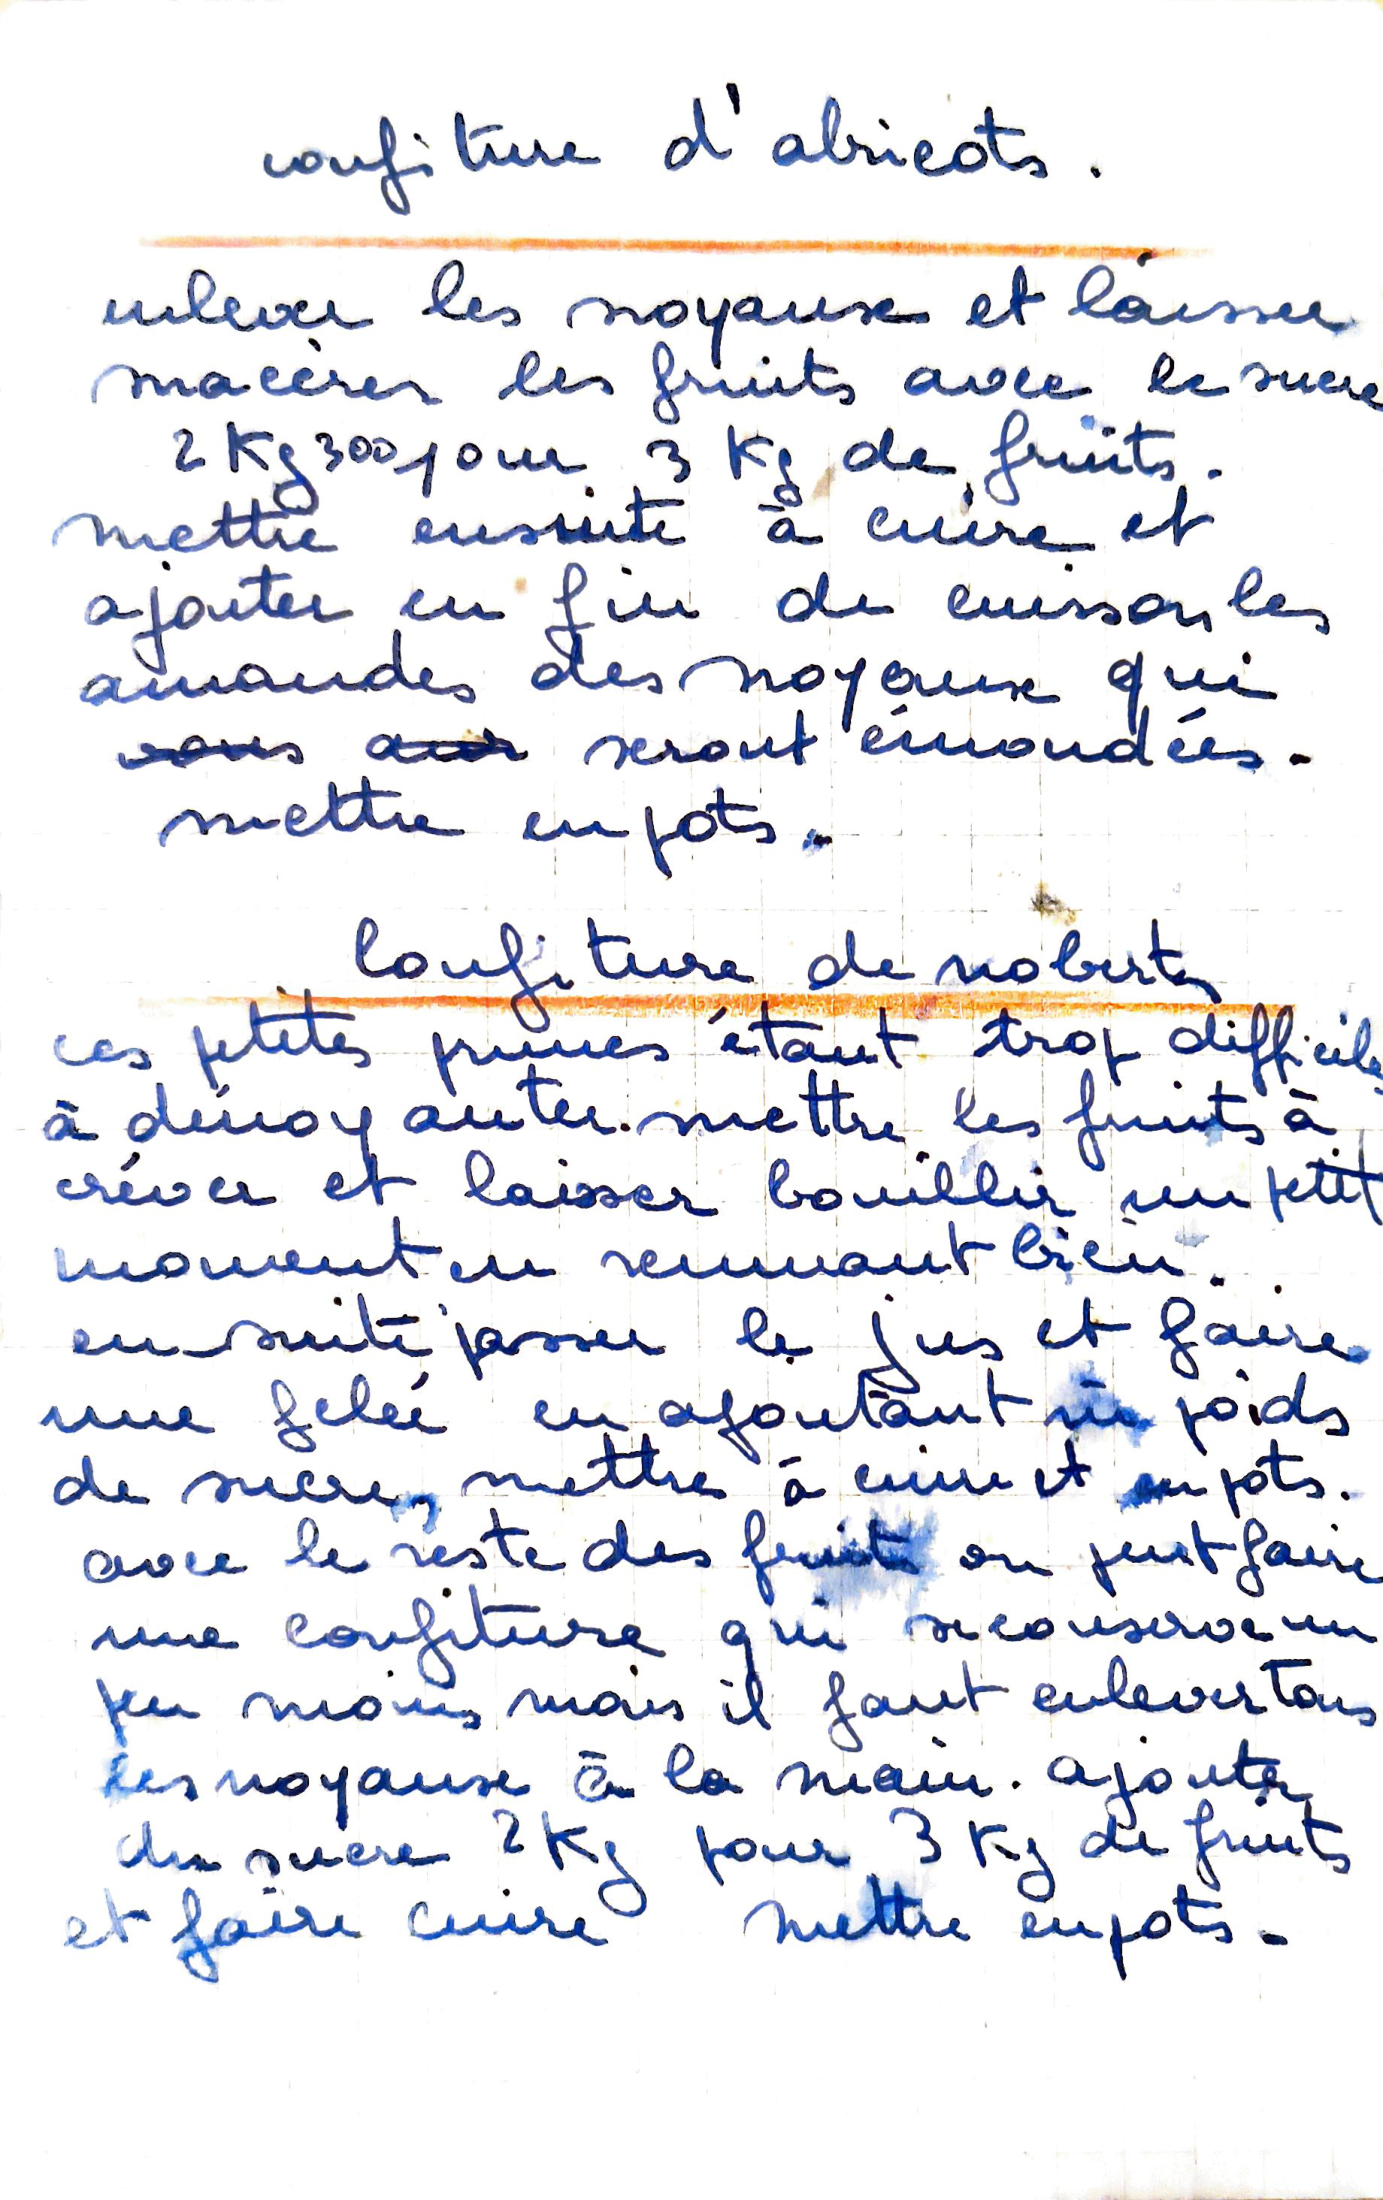 confiture d'abricots.
enlever les noyaux et laisser
macèrer les fruits avec le sucre
2 Kg 300 pour 3 Kg de fruits.
mettre ensuite à cuire et
ajouter en fin de cuisson les
amandes des noyaux qui
vous aur seront émondées.
mettre en pots.
Confiture de noberts
ces petites prunes étant trop difficiles
à dénoyauter. mettre les fruits à
créver et laisser bouillir un petit
moment en remuant bien.
ensuite passer le jus et faire
une gelée en ajoutant un poids
de sucre, mettre à cuire et en pots.
avec le reste des fruits on peut faire
une confiture qui se conserve un
peu moins mais il faut enlever tous
les noyaux à la main. ajouter
du sucre 2 Kg pour 3 Kg de fruits
et faire cuire mettre en pots.